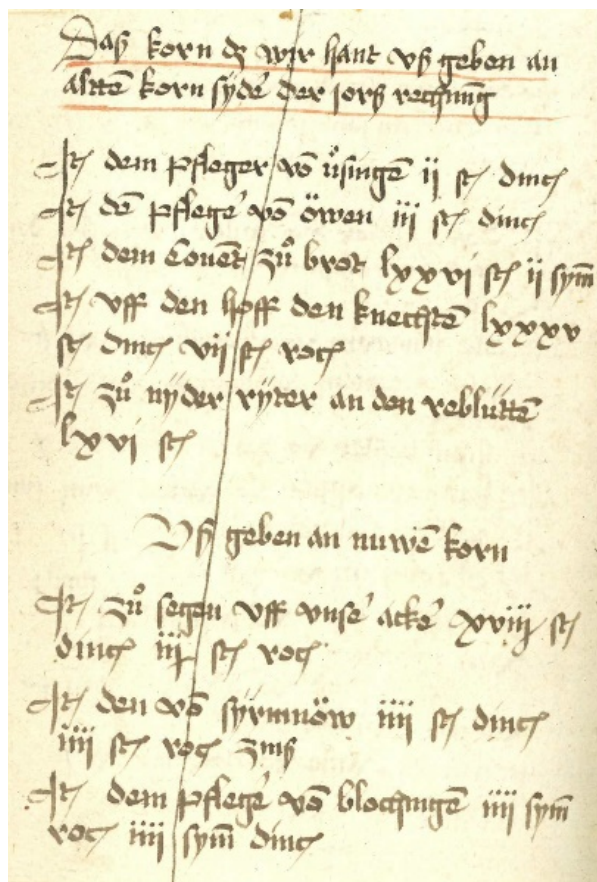 Daß korn dz wir hant vß geben an
altē korn syde der iorß rechnūg
Itē dem pfleger vō ůsingē ij sch dinch
Itē dē pflege vō öwen iij sch dinch
Itē dem Covēt zů brot lxxvi sch ij sym̄
Itē vff den hoff den knechtē lxxxv
sch dinch vij sch roch
Itē zů nyder ryter an den reblüttē
lxvi sch
Vß geben an nuwē korn
Itē zů segen vff vnse acke xviij sch
dinch iij sch roch
Itē den vō syrmnöw iiij sch dinch
iiij sch roch zinß
Itē dem pflege vō blochingē iiij sym̄
roch iiij sym̄ dinch